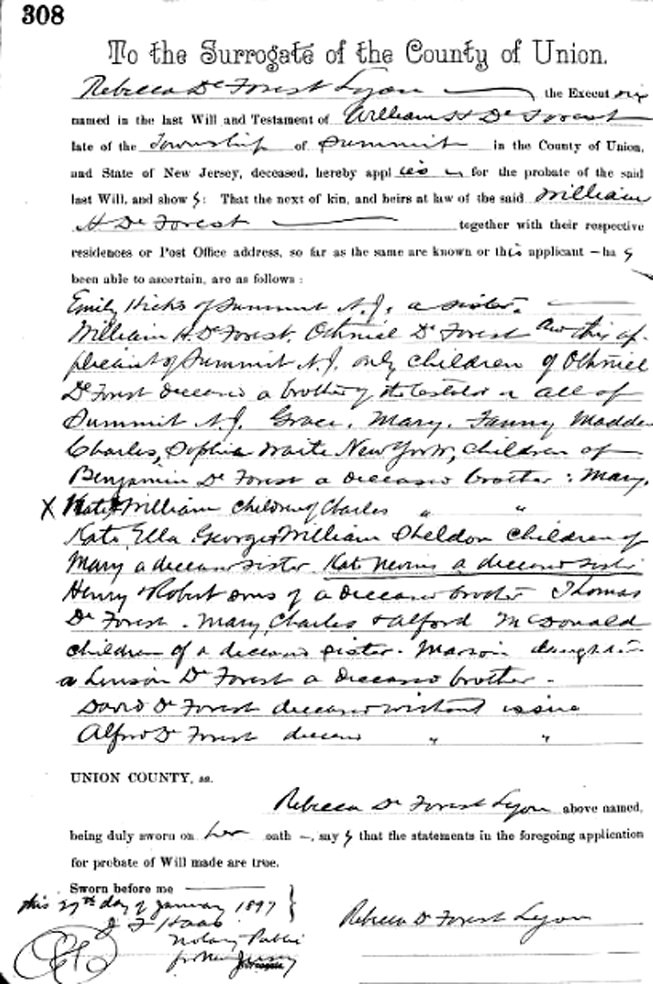 308
To the Surrogate of the County of Union.
Rebecca De Forest Lyon the Executrix
named in the last Will and Testament of William H De Forest
late of the Township of Summit in the County of Union,
and State of New Jersey, deceased, hereby applies for the probate of the said
last Will, and shows: That the next of kin, and heirs at law of the said William
H De Forest together with their respective
residences or Post Office address, so far as the same are known or this applicant – has
been able to ascertain, are as follows:
Emily Hicks of Summit N.J. a sister.
William H. De Forest. Othniel De Forest and this ap-
plicant of Summit N.J. only children of Othniel
De Forest deceased a brother of the testator all of
Summit N.J. Grace, Mary, Fanny Madden
Charles, Sophia Waite New York, children of
Benjamin De Forest a deceased brother: Mary,
X Kate & William children of Charles " "
Kate, Ella George & William Sheldon children of
Mary a deceased sister. Kate Nevius a deceased sister
Henry & Robert sons of a deceased brother Thomas
De Forest. Mary, Charles & Alford McDonald
children of a deceased sister. Marion daughter
a Linson De Forest a deceased brother.
David De Forest deceased without issue
Alfred De Forest deceased " "
UNION COUNTY, ss.
Rebecca De Forest Lyon above named,
being duly sworn on her oath –, says that the statements in the foregoing application
for probate of Will made are true.
Sworn before me
this 27th day of January 1897 }
J F Haas Rebecca De Forest Lyon
Notary Public
for New Jersey